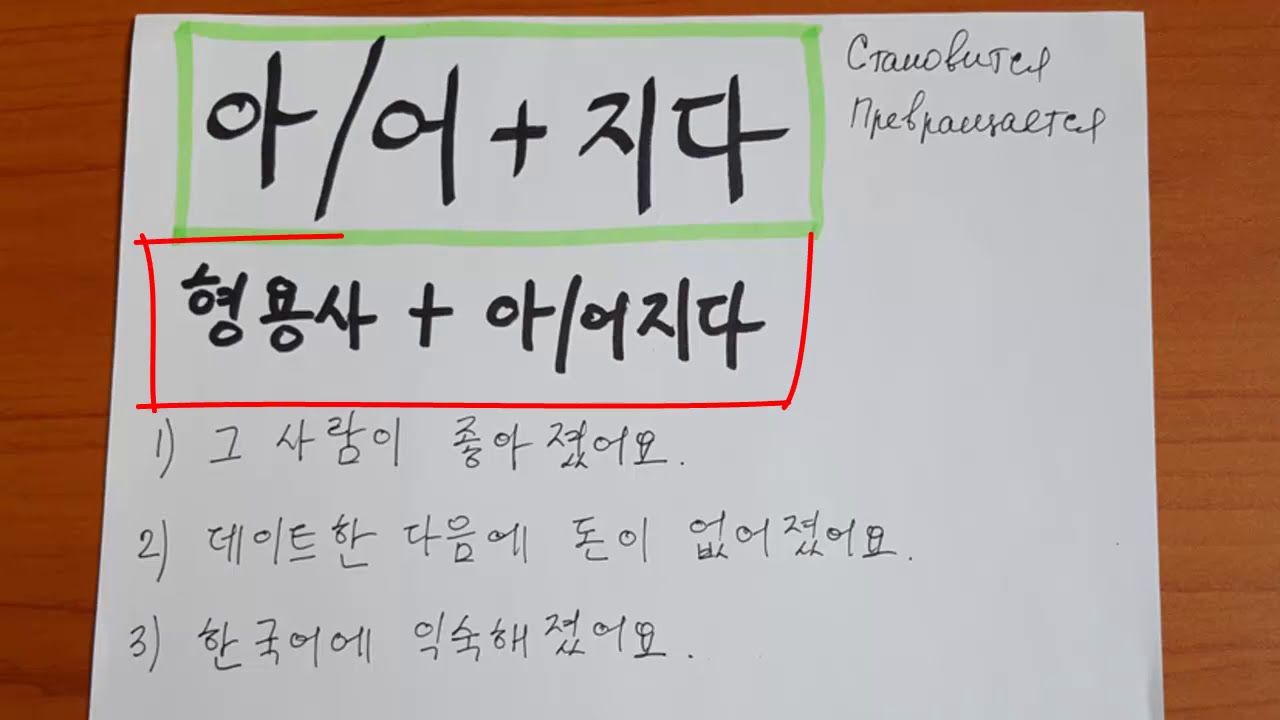 아/어 + 지다
Становится
Превращается
형용사 + 아/어지다
1) 그 사람이 좋아졌어요.
2) 데이트한 다음에 돈이 없어졌어요.
3) 한국어에 익숙해졌어요.